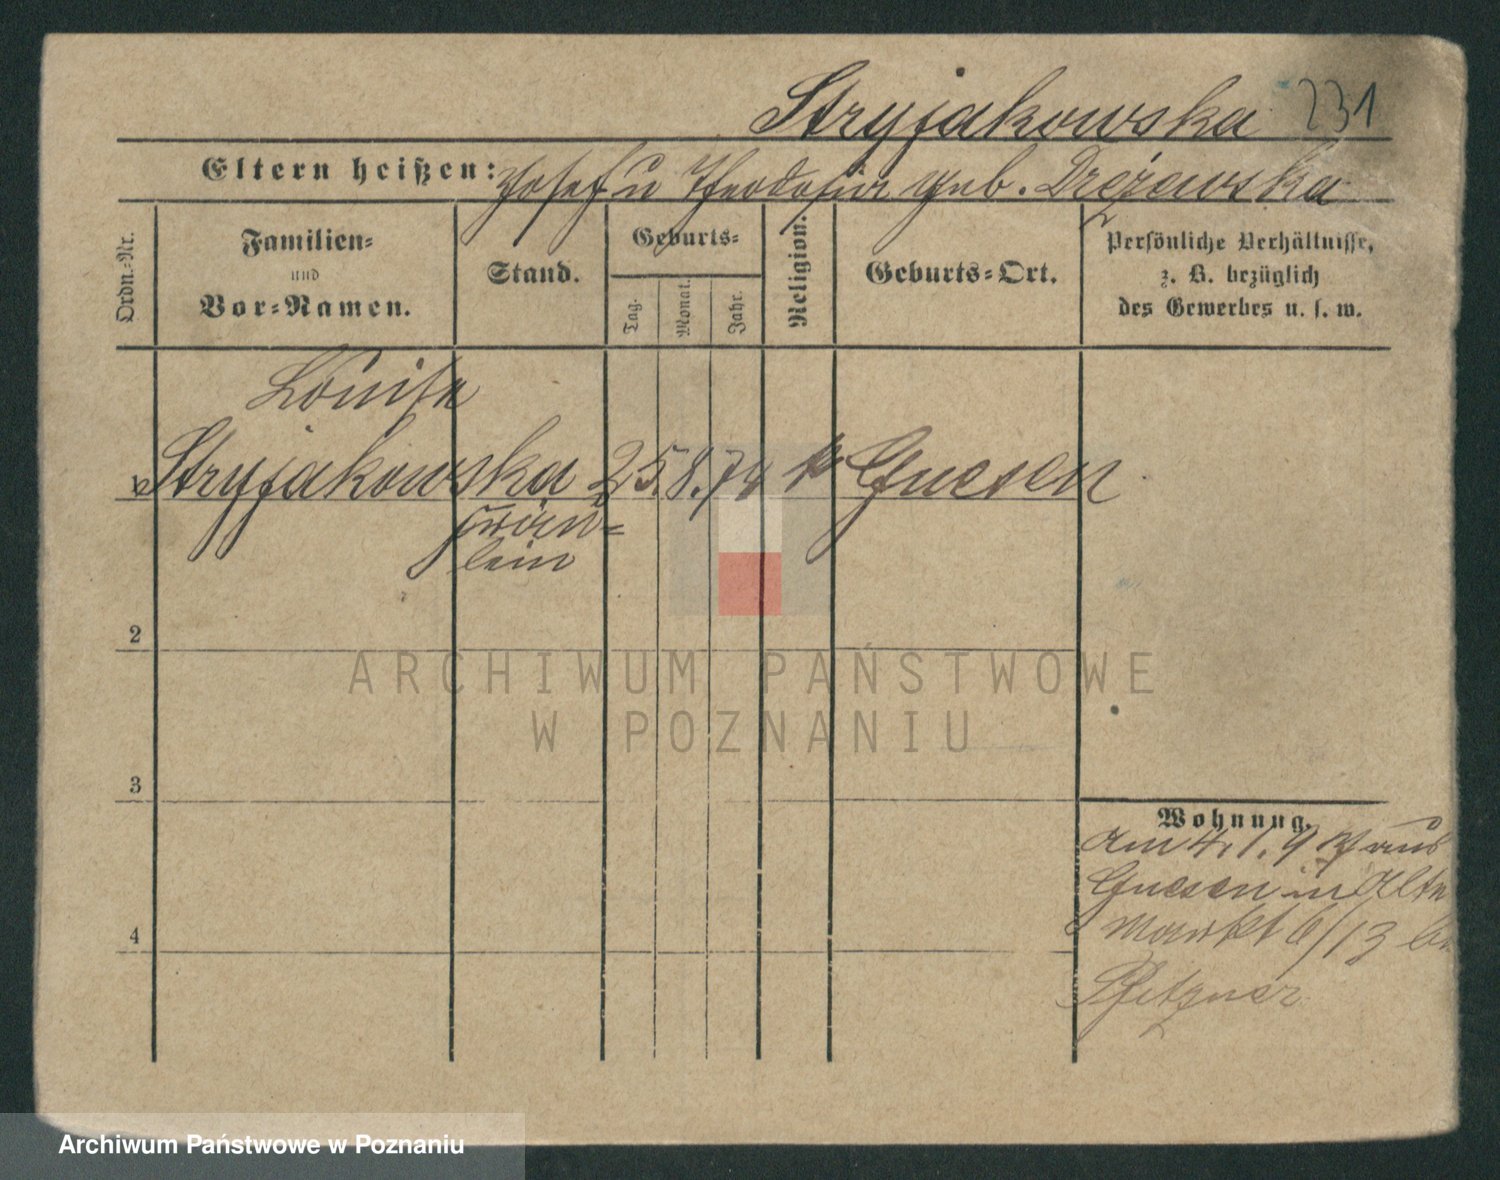 Stryjakowska 231
Eltern heißen: Josef u Theodosia geb. Drężewska
Ordn.-Nr.
Familien-
und
Vor-Namen.
Stand.
Geburts-
Tag.
Monat.
Jahr.
Religion.
Geburts-Ort.
Persönliche Verhältnisse,
z. B. bezüglich
des Gewerbes u. s. w.
Louise
1 Stryjakowska 25. 8. 74 k Gnesen
Fräu-
lein
2
3
Wohnung.
am 4. 1. 9 aus
Gnesen in Alte
Markt 6/13 bei
Pfitzner
4
ARCHIWUM PAŃSTWOWE
W POZNANIU
Archiwum Państwowe w Poznaniu